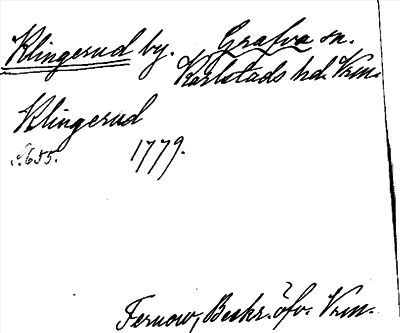 Klingerud by. Grafva sn.
Karlstads hd. Vrm.
Klingerud
S. 655. 1779.
Fernow, Beskr. öfv. Vrm.